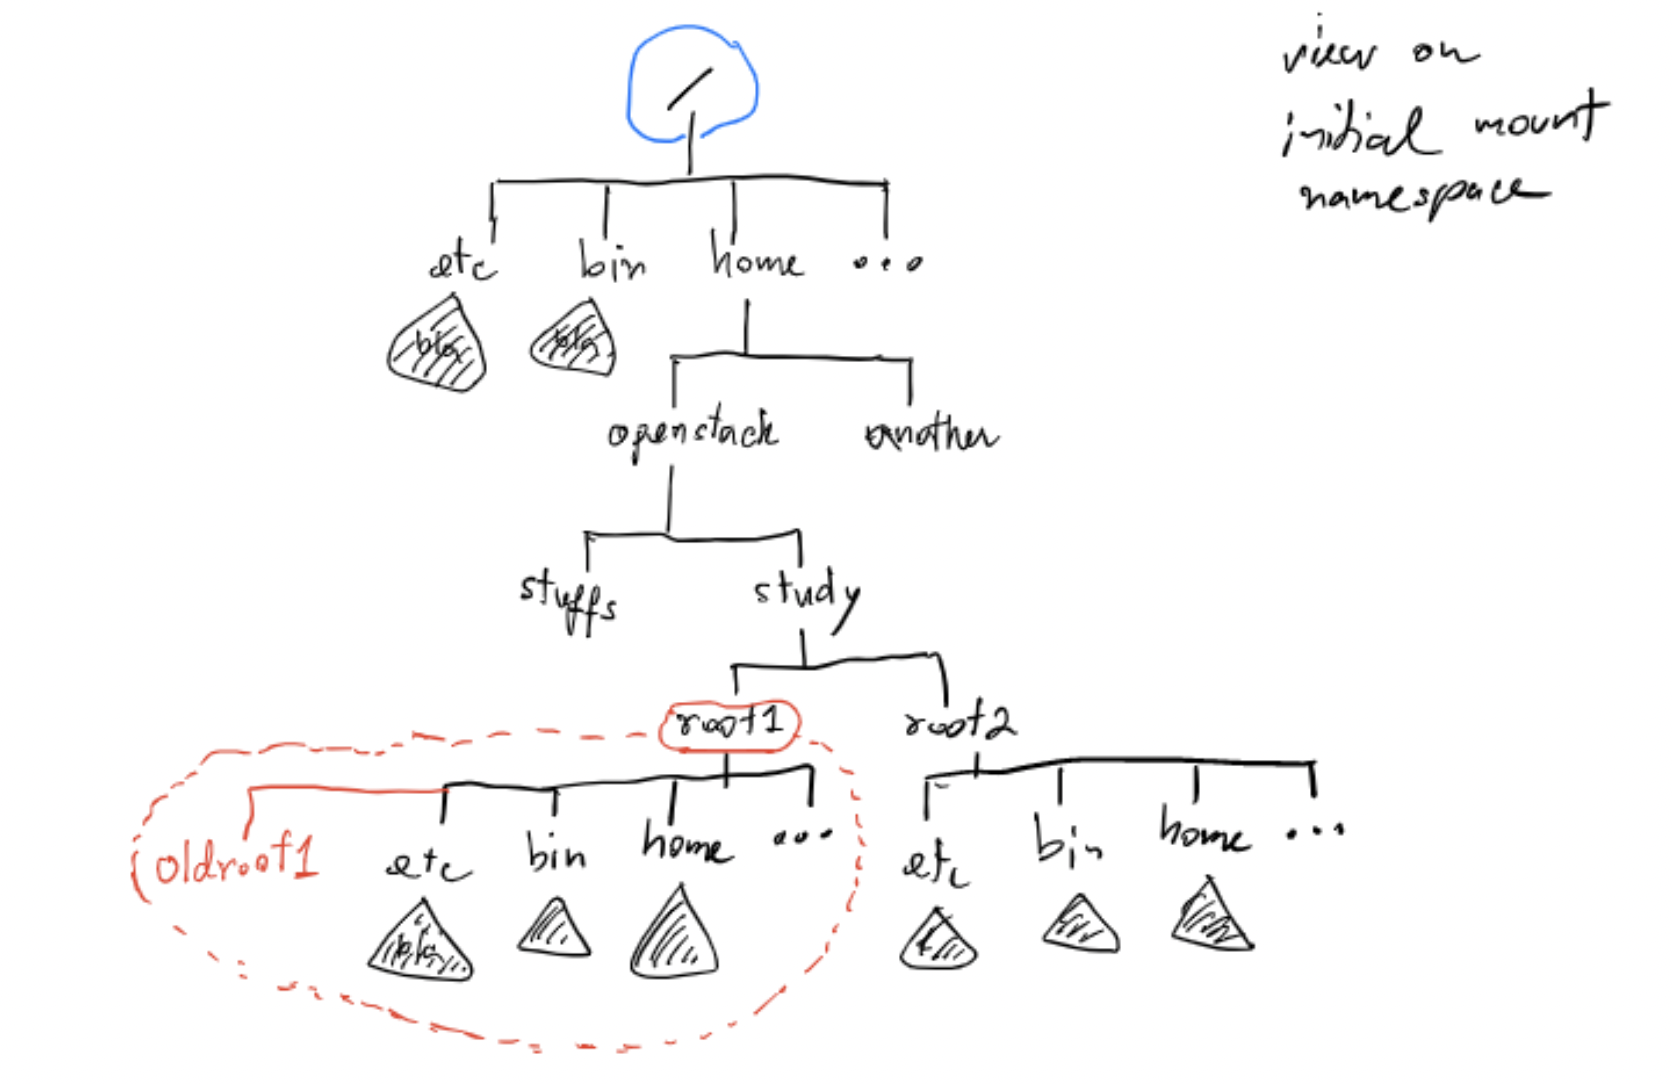 view on
initial mount
namespace
/
etc bin home ...
bla bla
openstack another
stuffs study
root1 root2
oldroot1 etc bin home ... etc bin home ...
bla